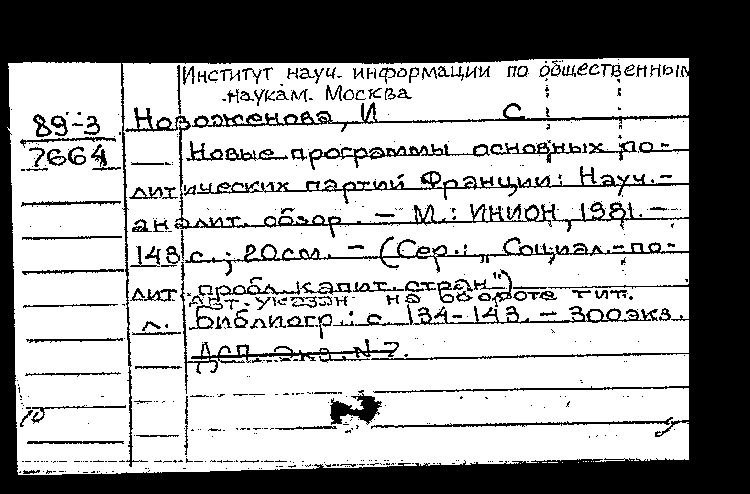 Институт науч. информации по общественным
наукам. Москва
89-3
Новоженова, И С
7664
Новые программы основных по-
литических партий Франции: Науч.-
аналит. обзор. - М.: ИНИОН, 1981. -
148 с.; 20см. - (Сер.: „Социал.-по-
лит. пробл. капит. стран")
Авт. указан на обороте тит.
л. Библиогр.: с. 134-143. - 300 экз.
ДСП. Экз. N 7.
10